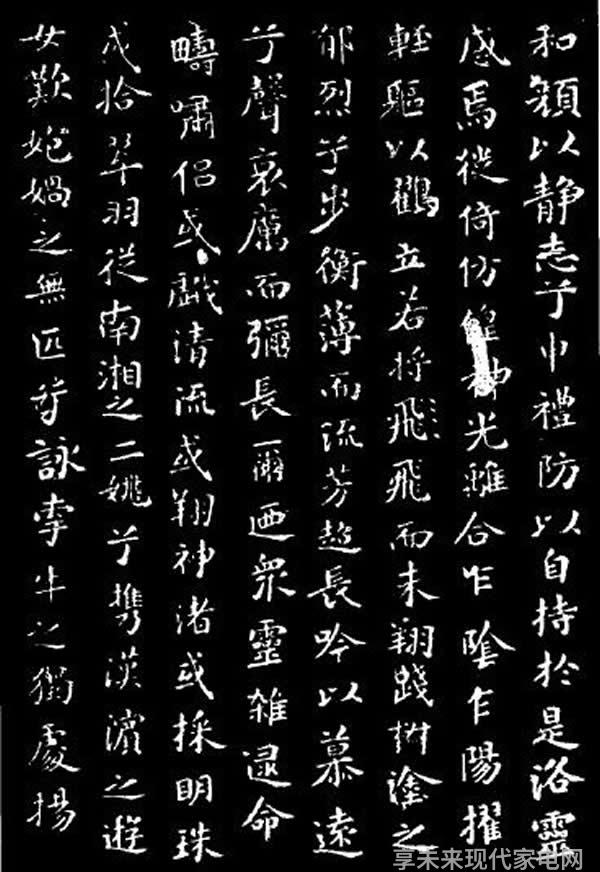 和顔以静志兮申禮防以自持於是洛靈
感焉徙倚仿偟神光離合乍陰乍陽擢
輕軀以鶴立若將飛飛而未翔踐椒塗之
郁烈兮步衡薄而流芳超長吟以慕遠
兮聲哀厲而彌長爾迺衆靈雜遝命
疇嘯侶或戲清流或翔神渚或採明珠
或拾翠羽從南湘之二姚兮携漢濱之遊
女歎匏媧之無匹兮詠牽牛之獨處揚
享未来现代家电网